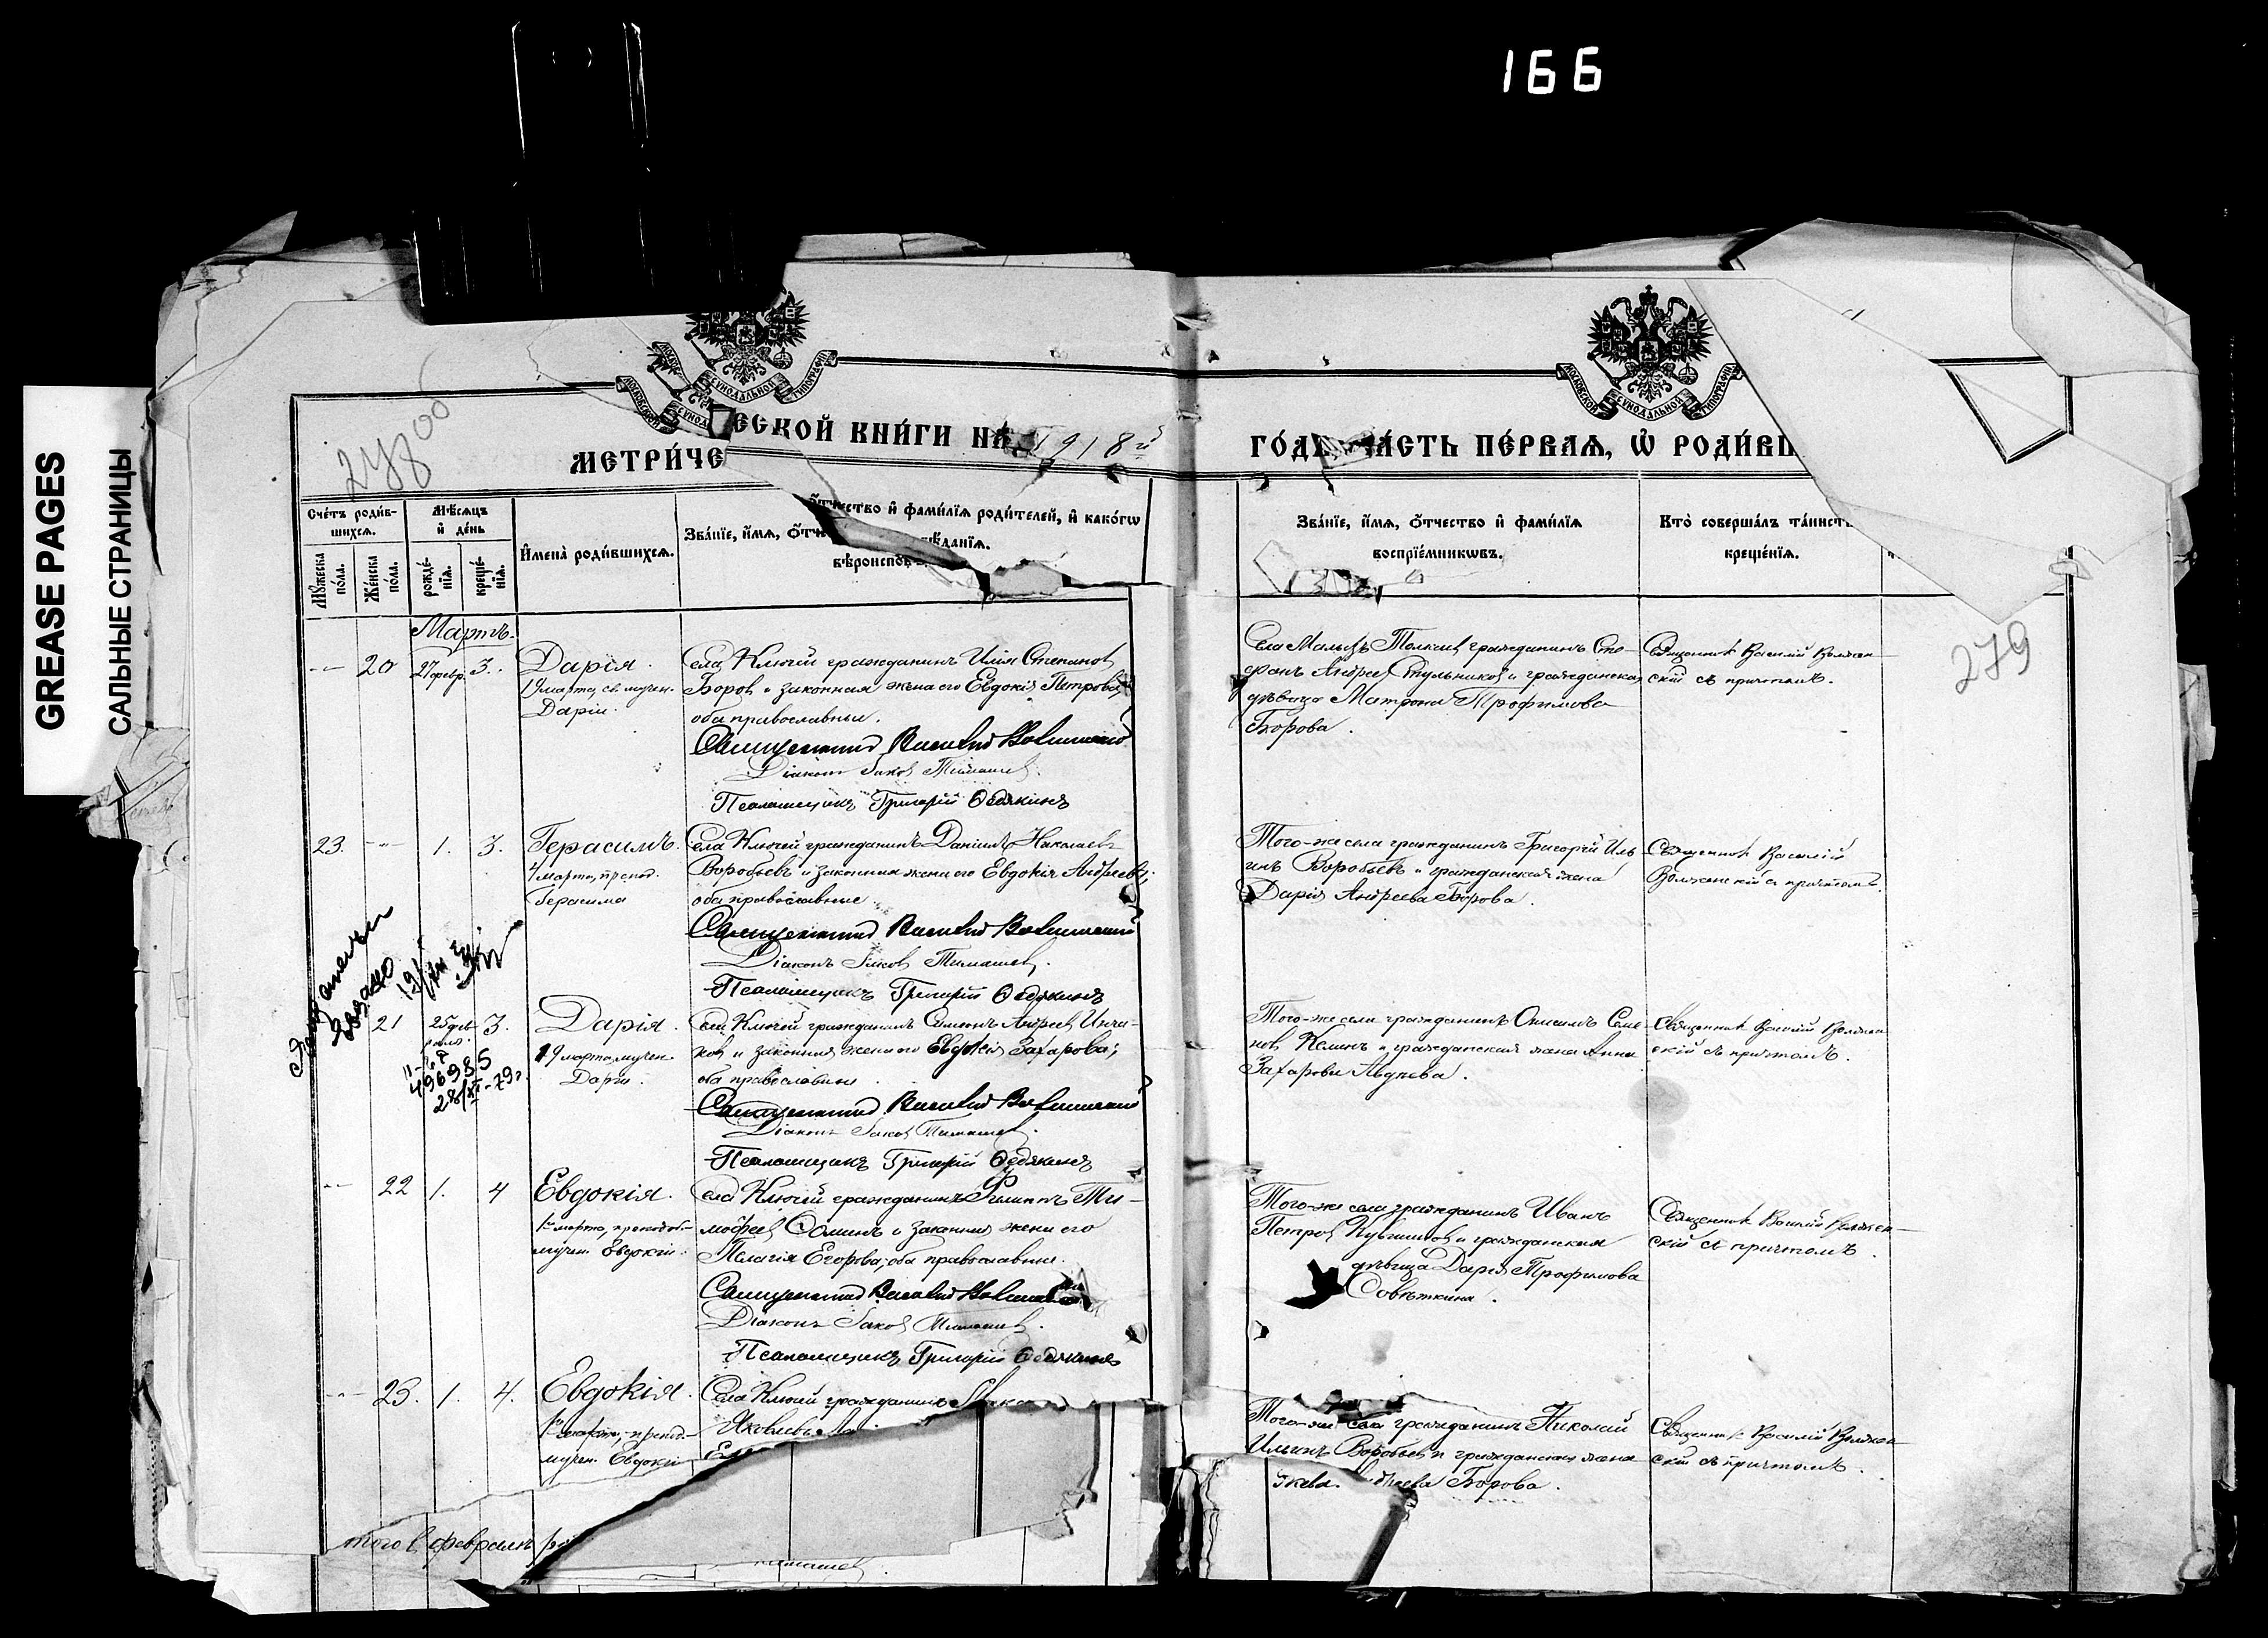 166
GREASE PAGES
САЛЬНЫЕ СТРАНИЦЫ
МОСКОВСКОЙ СѴНОДАЛЬНОЙ ТИПОГРАФІИ
МЕТРИ́ЧЕ ЕСКОЙ КНИ́ГИ НА 1918й
ГО́ДЪ ЧА́СТЬ ПЕ́РВАЯ, Ѡ҆ РОДИ́ВШ
278об
Сче́тъ роди́в-
шихся.
Мѣ́сяцъ
и҆ де́нь
Мꙋ́жеска по́ла.
Же́нска по́ла.
рожде́-
нїя.
креще́-
нїя.
И҆мена̀ роди́вшихся.
Зва́нїе, и҆́мя, ѻ҆́тче
ѻ҆́тчество и҆ фами́лїя роди́телей, и҆ како́гѡ
вѣроиспов ѣ́данїя.
Зва́нїе, и҆́мя, ѻ҆́тчество и҆ фами́лїя
воспрїе́мникѡвъ.
Кто̀ соверша́лъ та́инств
креще́нїя.
279
Мартъ.
20 27 февр. 3. Дарія.
19 марта, св. мучен.
Даріи.
Села Ключей гражданинъ Илія Степановъ
Боровъ и законная жена его Евдокія Петрова,
оба православные.
Священникъ Василій Волженскій
Діаконъ Іаковъ Тимашевъ.
Псаломщикъ Григорій Ѳедякинъ
Села Малыхъ Толкай гражданинъ Сте-
фанъ Андреевъ Стульниковъ и гражданская
дѣвица Матрона Трофимова
Борова.
Священникъ Василій Волжен-
скій съ причтомъ.
23. 1. 3. Герасимъ.
4 марта, препод.
Герасима
Села Ключей гражданинъ Даніилъ Николаевъ
Воробьевъ и законная жена его Евдокія Андреева;
оба православные.
Священникъ Василій Волженскій
Діаконъ Іаковъ Тимашевъ.
Псаломщикъ Григорій Ѳедякинъ
Того-же села гражданинъ Григорій Иль-
инъ Воробьевъ и гражданская жена
Дарія Андреева Борова.
Священникъ Василій
Волженскій съ причтомъ.
21 25 фев. 3. Дарія.
19 марта, мучен.
Даріи.
496935
28/XI-79г.
Села Ключей гражданинъ Симеонъ Андреевъ
и законная жена его Евдокія Захарова;
оба православные.
Священникъ Василій Волженскій
Діаконъ Іаковъ Тимашевъ.
Псаломщикъ Григорій Ѳедякинъ
Того-же села гражданинъ Онисимъ Семе-
новъ Келинъ и гражданская жена Анна
Захарова Авдеева.
Священникъ Василій Волжен-
скій съ причтомъ.
22 1. 4 Евдокія.
1го марта, преподоб.-
мучен. Евдокіи.
Села Ключей гражданинъ Филиппъ Ти-
мофеевъ Ѳоминъ и законная жена его
Пелагія Егорова; оба православные.
Священникъ Василій Волженскій
Діаконъ Іаковъ Тимашевъ.
Псаломщикъ Григорій Ѳедякинъ
Того-же села гражданинъ Иванъ
Петровъ Кувшиновъ и гражданская
дѣвица Дарія Трофимова
Совѣткина.
Священникъ Василій Волжен-
скій съ причтомъ.
23. 1. 4. Евдокія.
1го марта, препод.-
мучен. Евдокіи
Села Ключей гражданинъ
Яковлевъ
Того-же села гражданинъ Николай
Ильинъ Воробьевъ и гражданская жена
Борова.
Священникъ Василій Волжен-
скій съ причтомъ.
того въ февралѣ